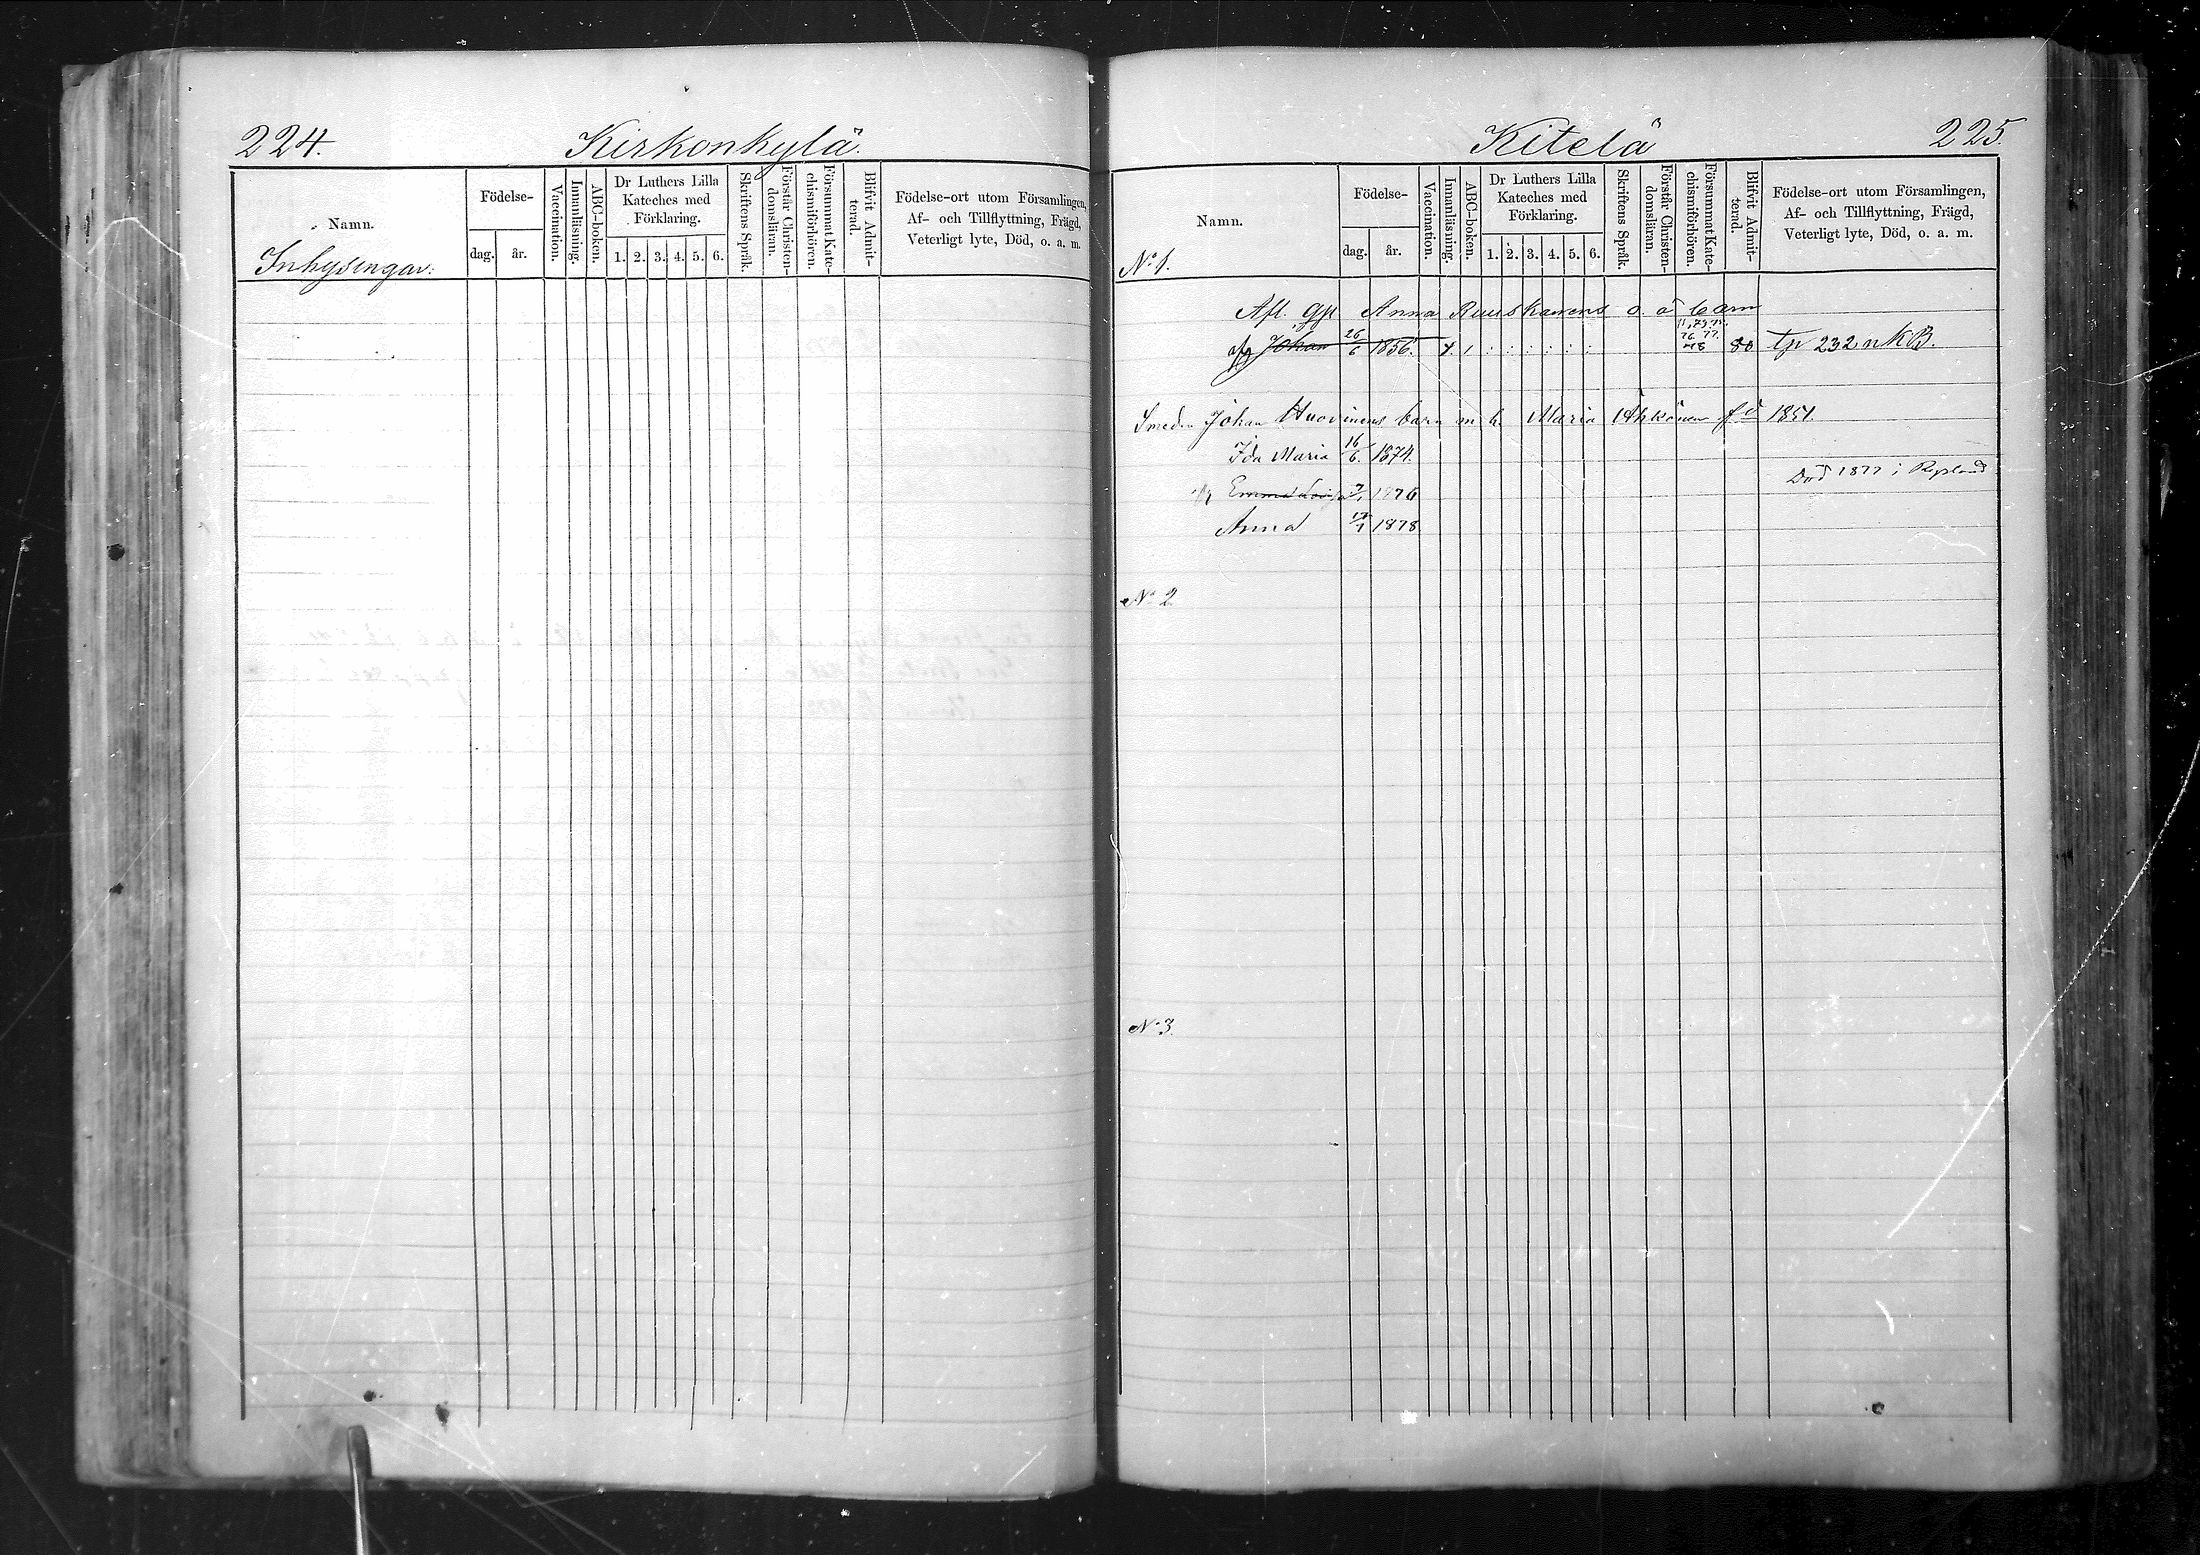 224.
Kirkonkylä.
Namn.
Födelse-
dag.
år.
Vaccination.
Innanläsning.
ABC-boken.
Dr Luthers Lilla
Kateches med
Förklaring.
1. 2. 3. 4. 5. 6.
Skriftens Språk.
Förstår Christen-
domsläran.
Försummat Kate-
chismiförhören.
Blifvit Admit-
terad.
Födelse-ort utom Församlingen,
Af- och Tillflyttning, Frägd,
Veterligt lyte, Död, o. a. m.
Inhysingar:
Kitelä
225.
Namn.
Födelse-
dag.
år.
Vaccination.
Innanläsning.
ABC-boken.
Dr Luthers Lilla
Kateches med
Förklaring.
1. 2. 3. 4. 5. 6.
Skriftens Språk.
Förstår Christen-
domsläran.
Försummat Kate-
chismiförhören.
Blifvit Admit-
terad.
Födelse-ort utom Församlingen,
Af- och Tillflyttning, Frägd,
Veterligt lyte, Död, o. a. m.
No 1.
Afl. gp Anna Ruuskanens o. ä barn
Johan 26/6 1856. 80 tp 232 n KB.
Smeden Johan Huovinens barn m h. Maria Ahkönen fö 1851
Ida Maria 16/6. 1874.
Emma Lovisa 7/1 1876 Död 1877 i Ryssland
Anna 17/7 1878
No 2
No 3.